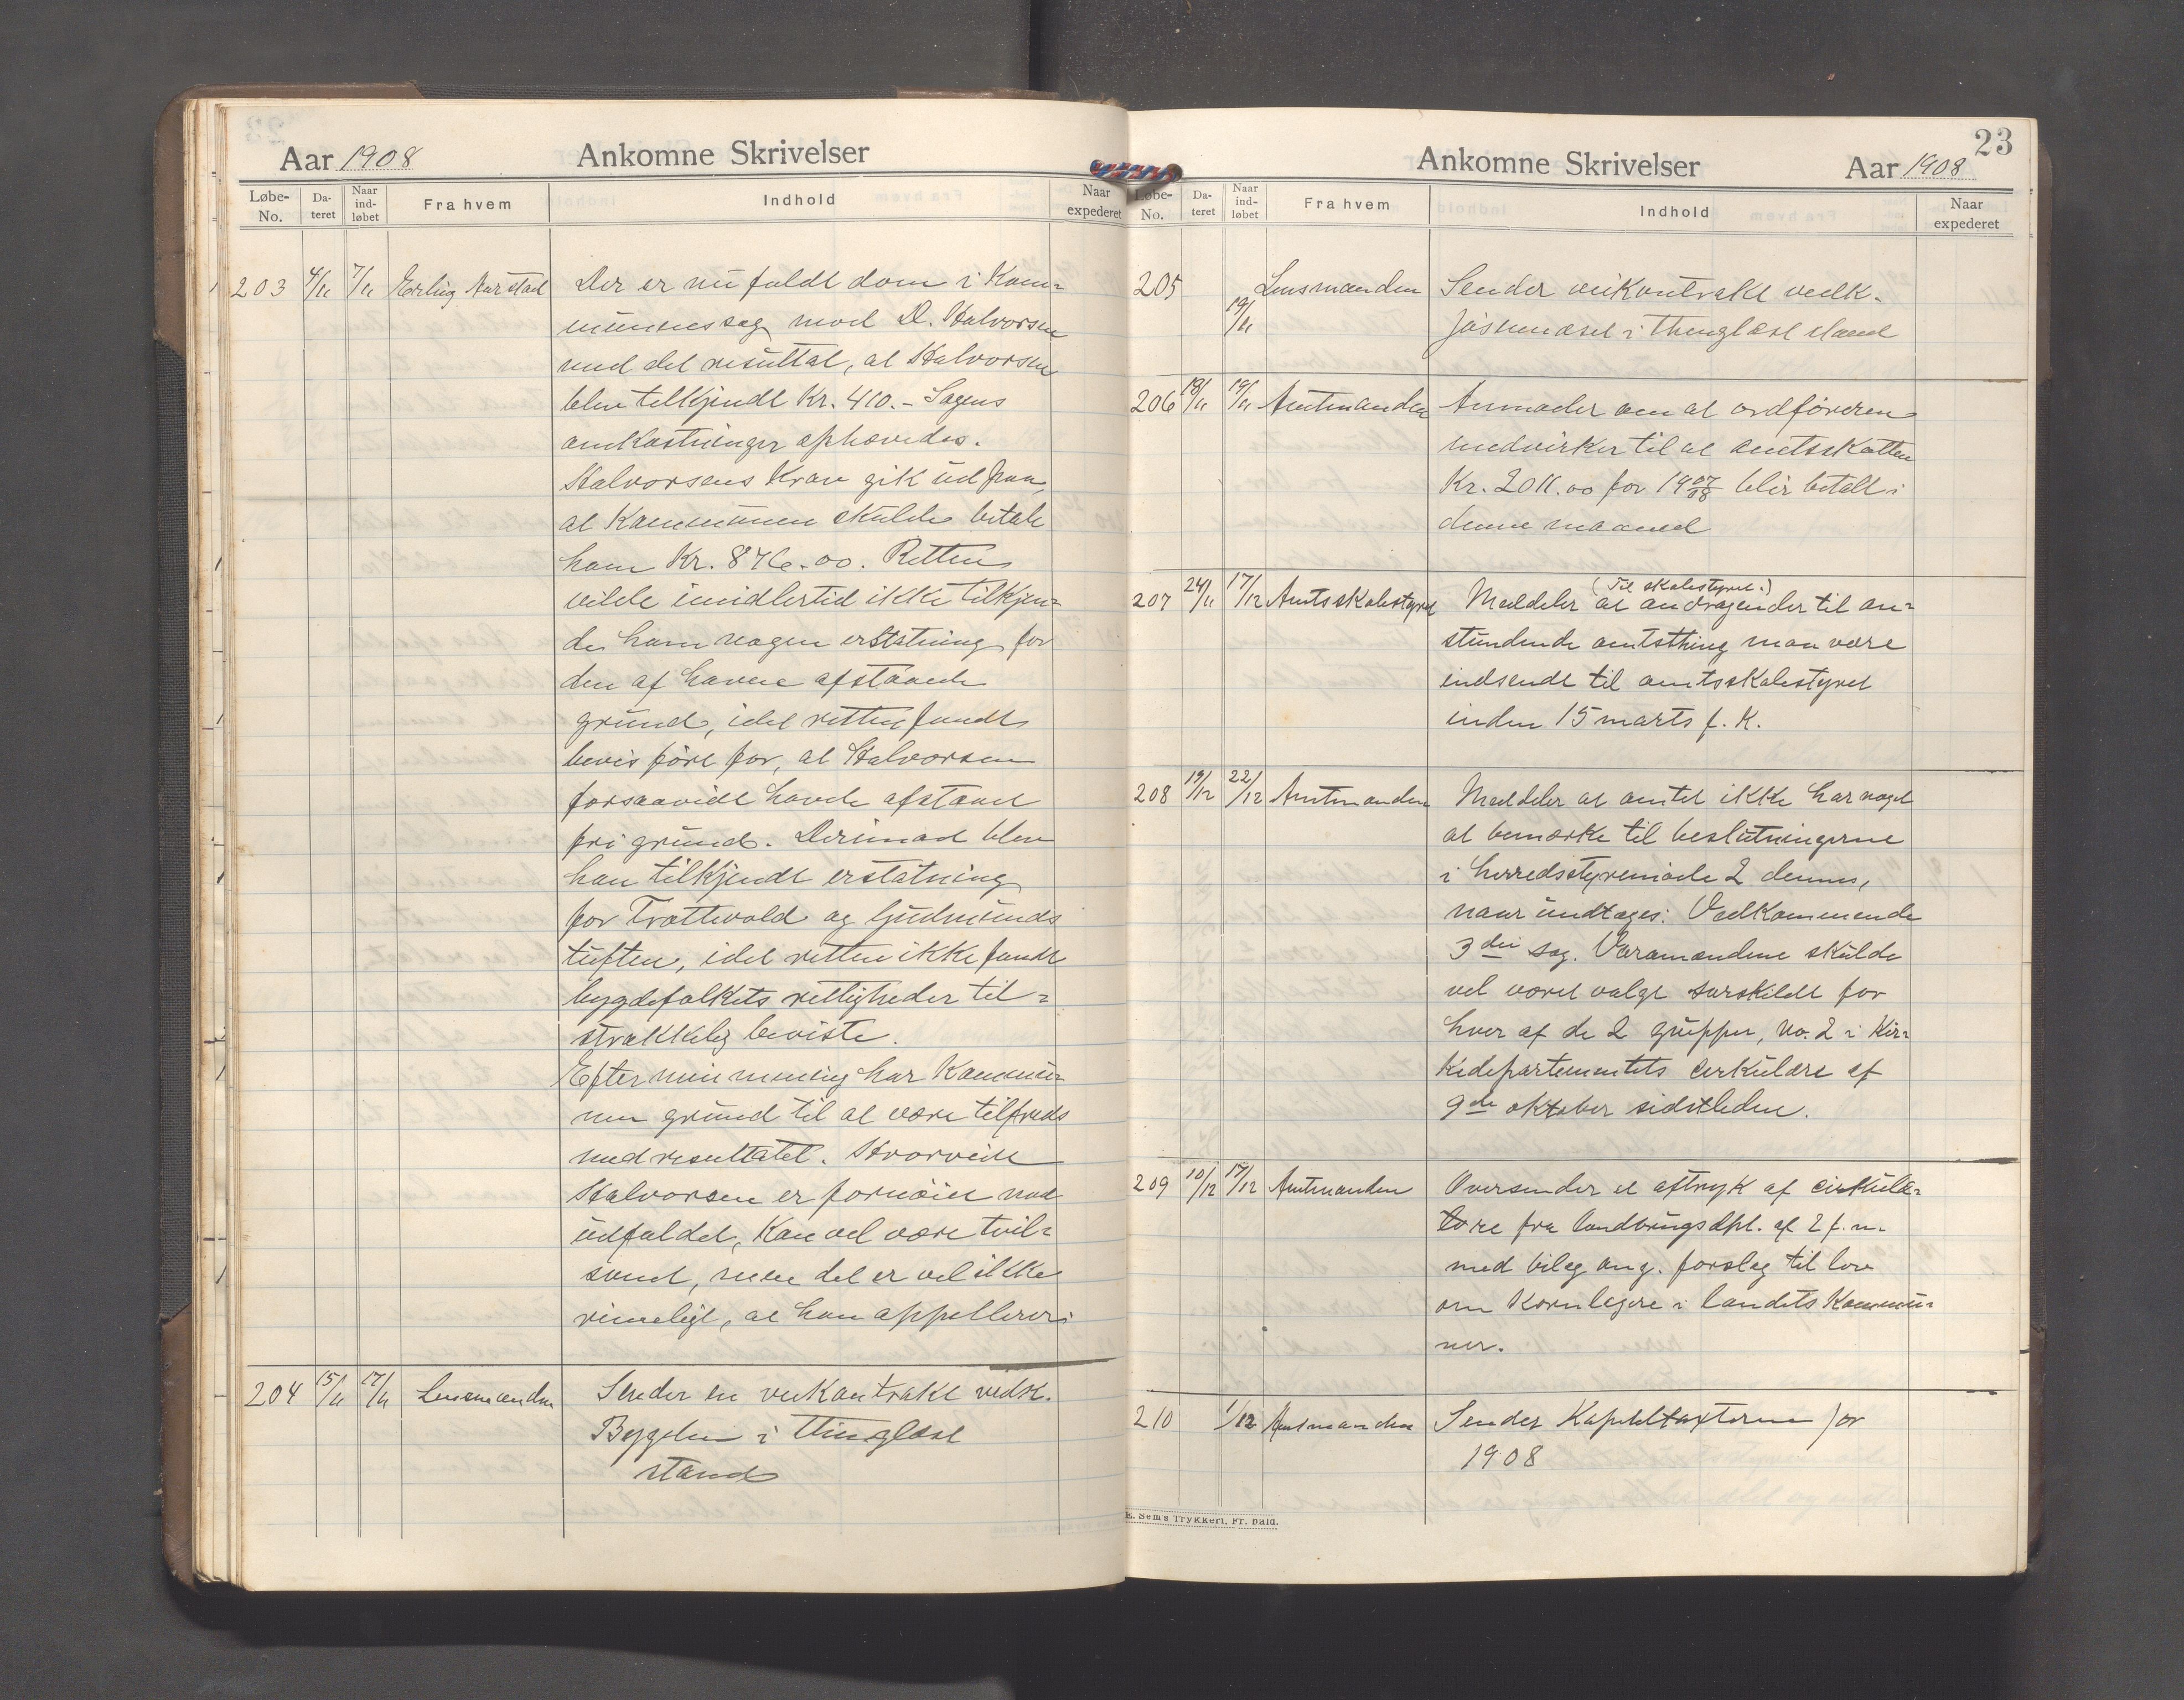 Aar 1908 Ankomne Skrivelser
Løbe-No. Dateret Naar indløbet Fra hvem Indhold Naar expederet
203 4/11 7/11 Erling Aarstad Der er nu faldt dom i Kom-
munenes sag mod D. Halvorsen
med det resultat, at Halvorsen
blev tilkjendt Kr. 410.- Sagens
omkostninger ophævedes.
Halvorsens Krav gik ud paa,
at Kommunen skulde betale
ham Kr. 876.00. Retten
vilde imidlertid ikke tilkjen-
de ham nogen erstatning for
den af havne afstaaede
grund, idet retten fandt
bevis ført for, at Halvorsen
forsaavidt havde afstaaet
fri grund. Derimod blev
han tilkjendt erstatning
for Trættevold og Gudmunds
tuften, idet retten ikke fandt
bygdefolkets rettigheder til-
strækkelig beviste.
Efter min mening har Kommu-
nen grund til at være tilfreds
med resultatet. Hvorvidt
Halvorsen er fornøiet med
udfaldet, kan vel være tvil-
somt, men det er vel ikke
rimeligt, at han appellerer
204 15/11 17/11 Lensmanden Sender en veikontrakt vedk.
Bygden i thinglæst
stand
23
Ankomne Skrivelser Aar 1908
Løbe-No. Dateret Naar indløbet Fra hvem Indhold Naar expederet
205 19/11 Lensmanden Sender veikontrakt vedk.
Jøsenæset i thinglæst stand
206 18/11 19/11 Amtmanden Anmoder om at ordføreren
medvirker til at amtsskatten
Kr. 2011.00 for 1907/08 blir betalt i
denne maaned
207 24/11 17/12 Amtsskolestyret Meddeler (Til skolestyret:) at andragender til an-
stundende amtsthing maa være
indsendt til amtsskolestyret
inden 15 marts f. K.
208 19/12 22/12 Amtmanden Meddeler at amtet ikke har noget
at bemærke til beslutningerne
i herredsstyremøde 2 dennes,
naar undtages: Vedkommende
3die sag. Varamændene skulde
vel været valgt særskildt for
hver af de 2 grupper, No. 2 i Kir-
kedepartementets cirkulære af
9de oktober sidstleden.
209 10/12 17/12 Amtmanden Oversender et aftryk af cirkulæ-
re fra landbrugsdpt. af 2 f. m.
med bilag ang. forslag til lov
om Kornlagere i landets Kommu-
ner.
210 1/12 Amtmanden Sender Kapiteltaxterne for
1908
E. Sem's Trykkeri, Fr. hald.